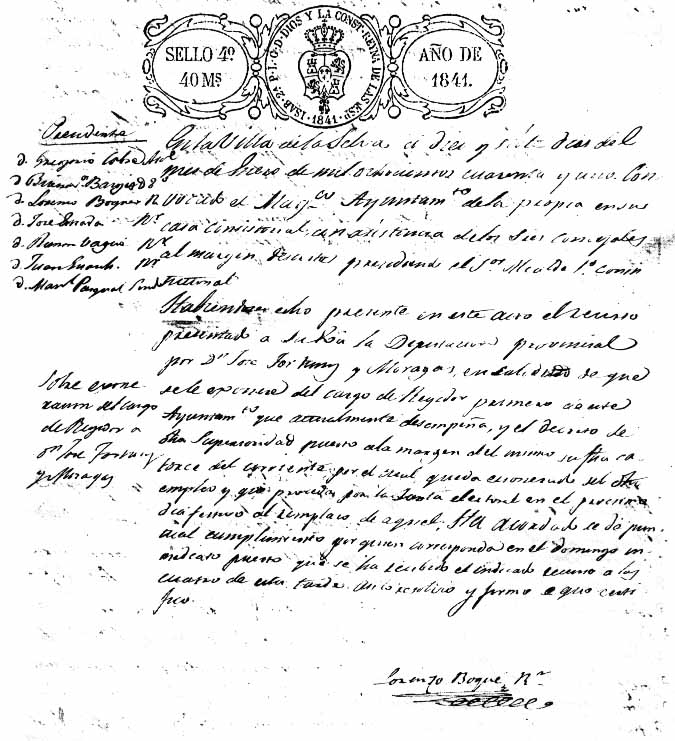 SELLO 4º
40 Mˢ
ISAB. 2ª P. L. G. D. DIOS Y LA CONST. REYNA DE LAS ESP.
1841
AÑO DE
1841.
d. Gregorio
d. Lorenzo Bogue R
d. José
d. Ramon
d. Juan
d. Manl. Pasqual Sind
En la Villa de la Selva á diez y siete dias del
mes de Enero de mil ochocientos cuarenta y uno. Con
vocado el Mag.co Ayuntam.to de la propia en sus
casa consistorial con asistencia de los Sres consejales
al margen descritos presidiendo el Sor Alcalde 1º consti
tucional
echo presente en este acto el recurso
presentado a la Diputacion provincial
por Dn José Fortuny y Moragas, en solicitud de que
se le exonere del cargo de Regidor primero de este
Ayuntam.to que actualmente desempeña, y el decreto de
dha Superioridad puesto al margen del mismo su fha ca
torce del corriente por el cual queda exonerado del dho
empleo y que proceda por la Junta electoral en el procsimo
dia festivo al remplazo de aquel. Ha acordado se dé pun
tual cumplimiento por quien corresponda en el domingo in
mediato puesto que se ha recibido el indicado recurso a las
cuatro de esta tarde. Asi resolvió y firmó de que certi
fico.
Sobre exone
racion del cargo
de Regidor a
Dn José Fortuny
y Moragas
Lorenzo Bogué, Rr